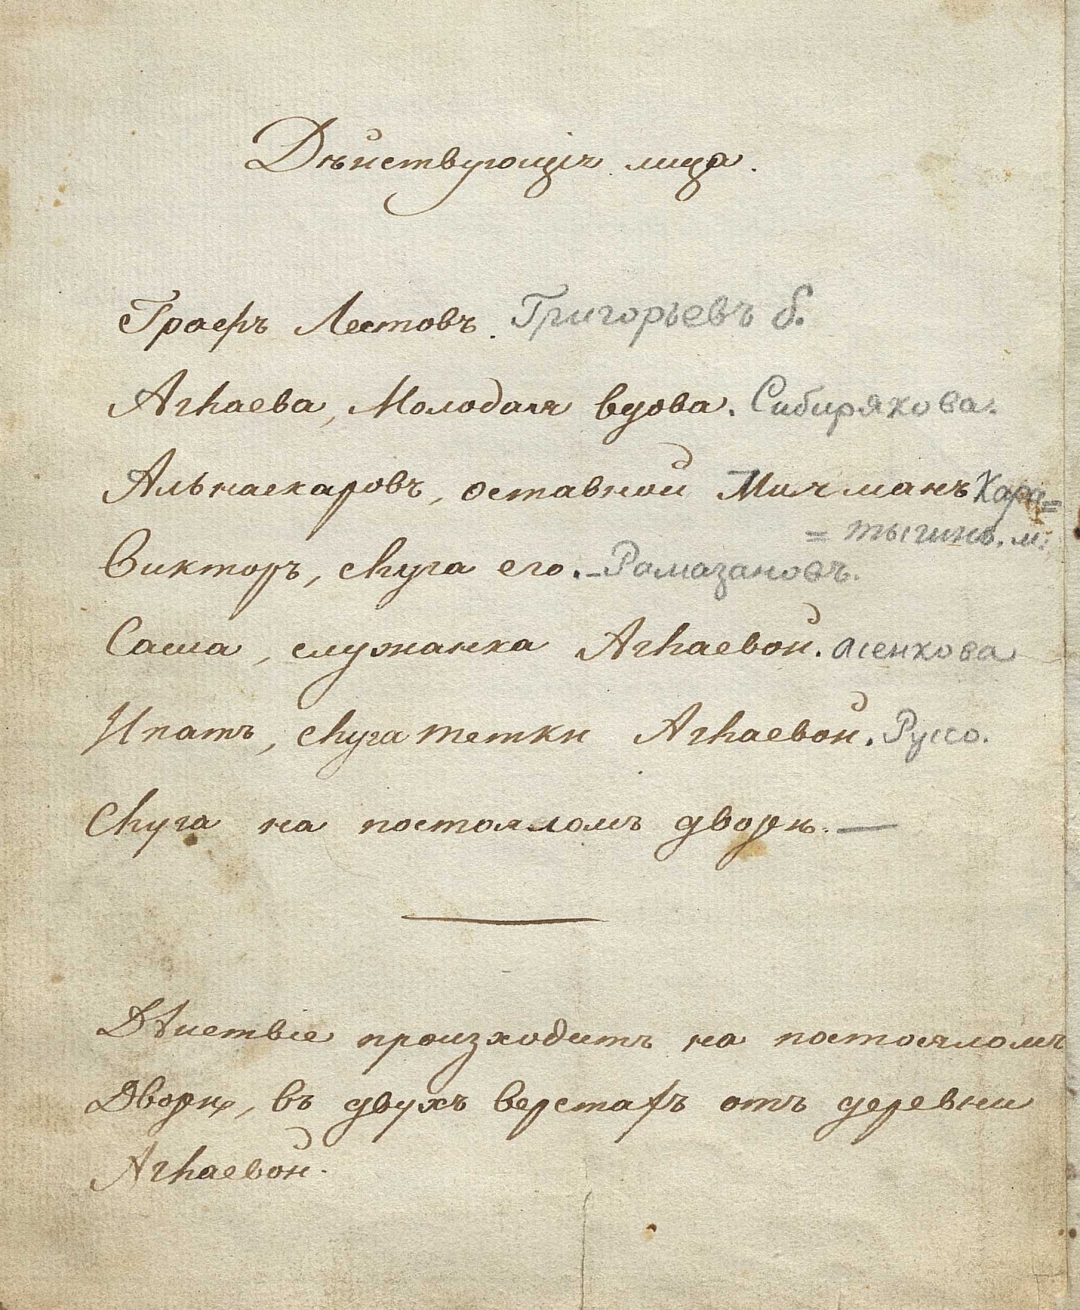 Дѣйствующія лица.
Графъ Лестовъ. Григорьевъ б.
Аглаева, Молодая вдова. Сибирякова.
Альнаскаровъ, оставной Мичманъ Кара=
= тыгинъ. м:
Викторъ, слуга его. - Рамазановъ.
Саша, служанка Аглаевой. Асенкова
Ипатъ, слуга тетки Аглаевой. Руссо.
Слуга на постояломъ дворѣ. —
Дѣйствіе произходитъ на постояломъ
Дворѣ, въ двухъ верстахъ отъ деревни
Аглаевой.